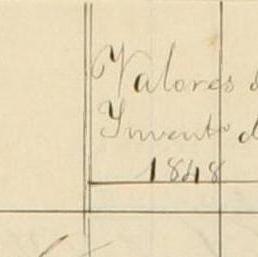 Valores d
Invent.º d
1848